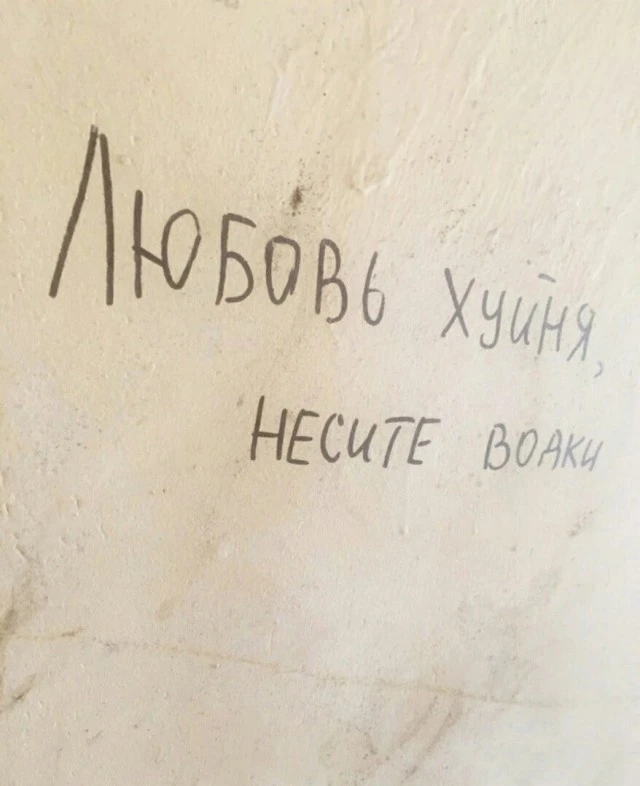 ЛЮБОВЬ ХУЙНЯ,
НЕСИТЕ ВОДКИ